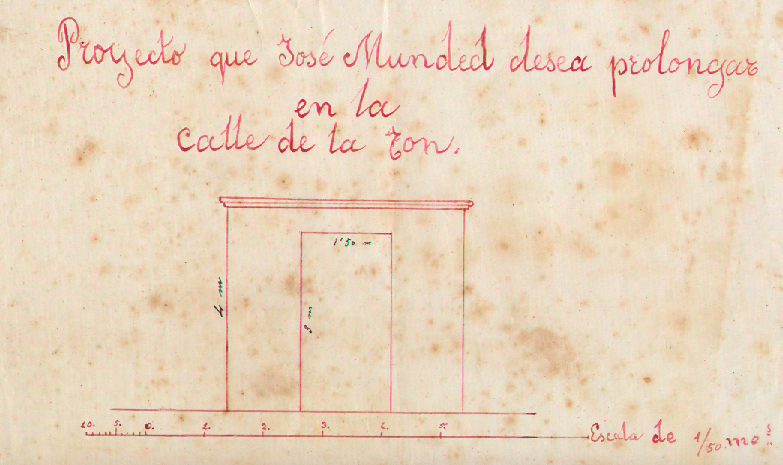 Proyecto que José Munded desea prolongar
en la
Calle de la Fon.
1'50 m
4 m
3 m
10. 5. 0. 1. 2. 3. 4. 5.
Escala de 1/50. mós